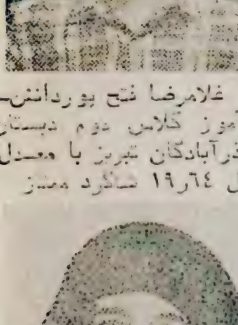 غلامرضا فتح پور دانش‌
آموز کلاس دوم دبستان
آذرآبادگان تبریز با معدل
ل ۱۹ر۶۴ شاگرد ممتاز